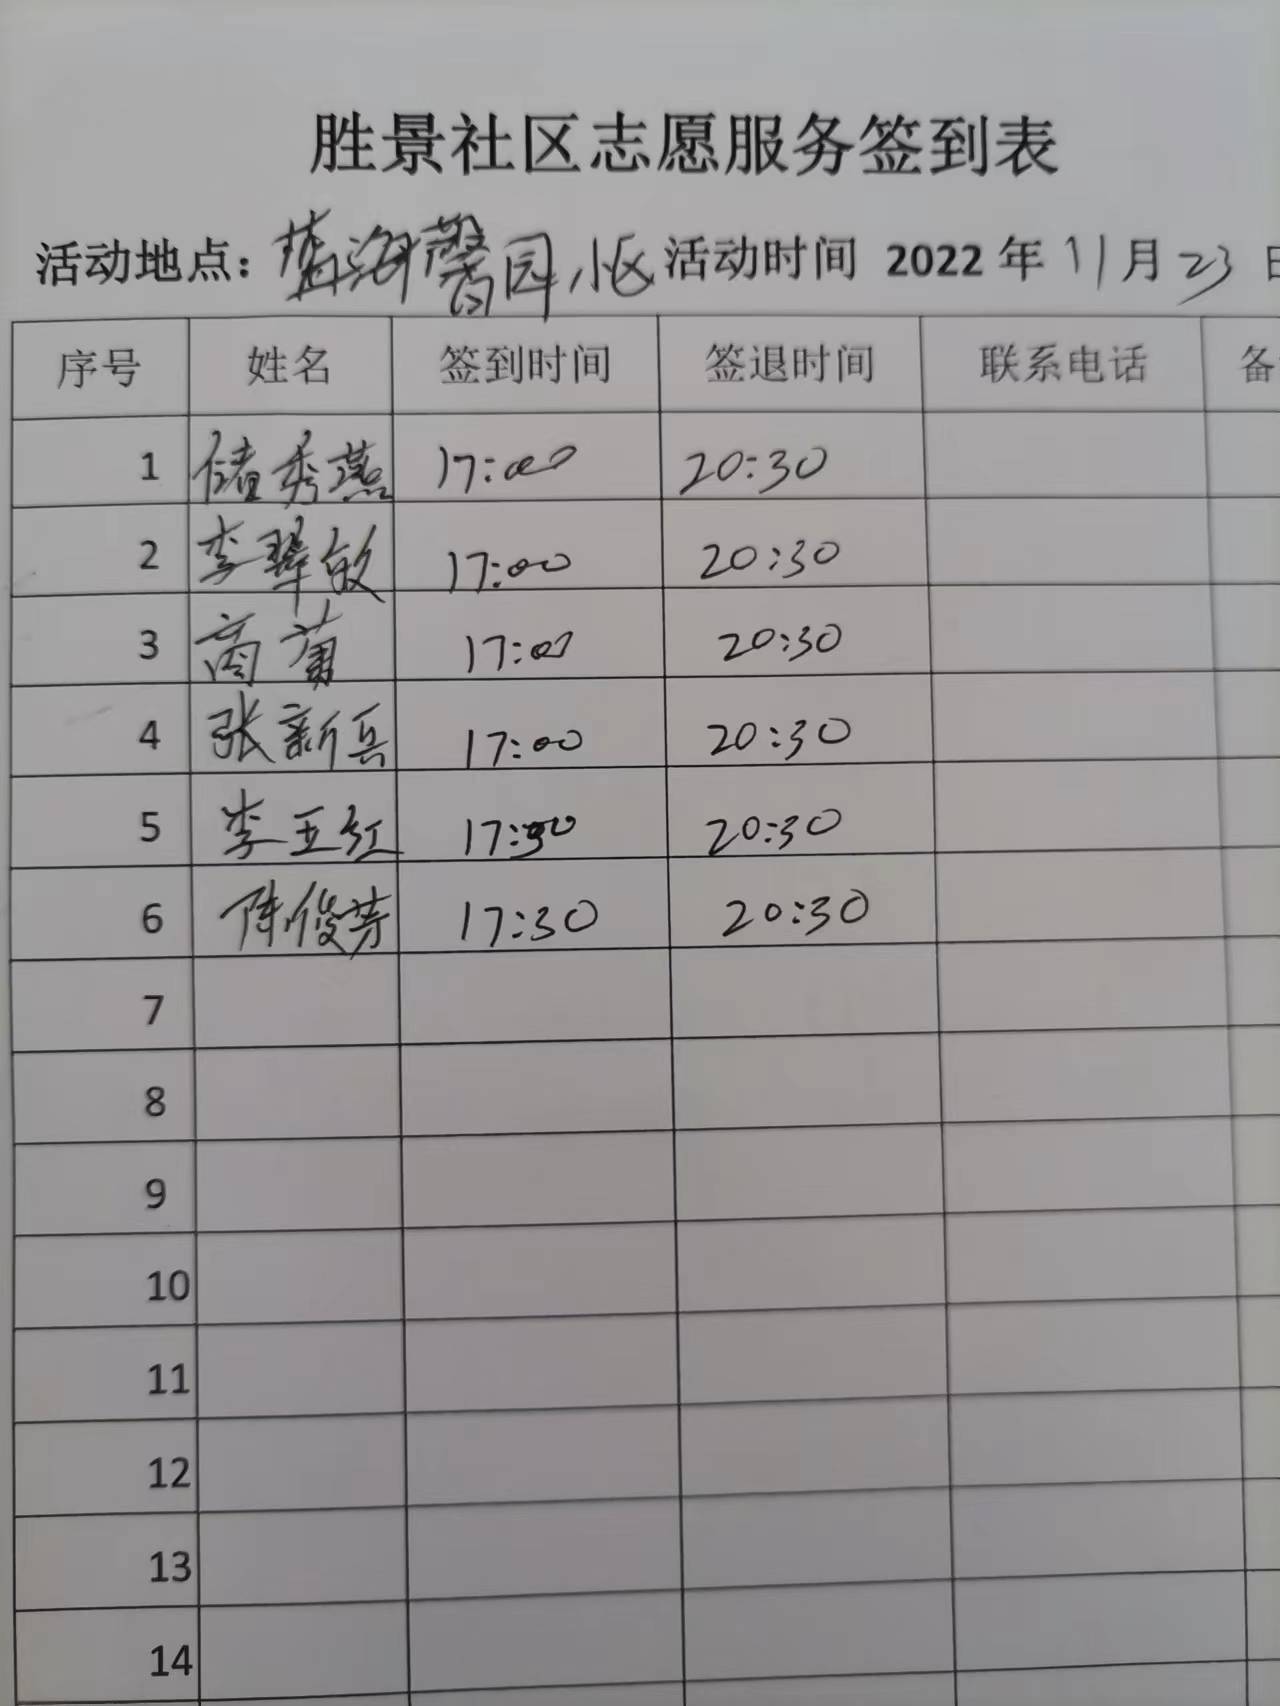 胜景社区志愿服务签到表
活动地点：蓝海馨园小区 活动时间 2022 年 11 月 23 日
序号 姓名 签到时间 签退时间 联系电话 备
1 储秀燕 17:00 20:30
2 李翠敏 17:00 20:30
3 商蕾 17:00 20:30
4 张新兵 17:00 20:30
5 李亚红 17:30 20:30
6 陈俊芳 17:30 20:30
7
8
9
10
11
12
13
14